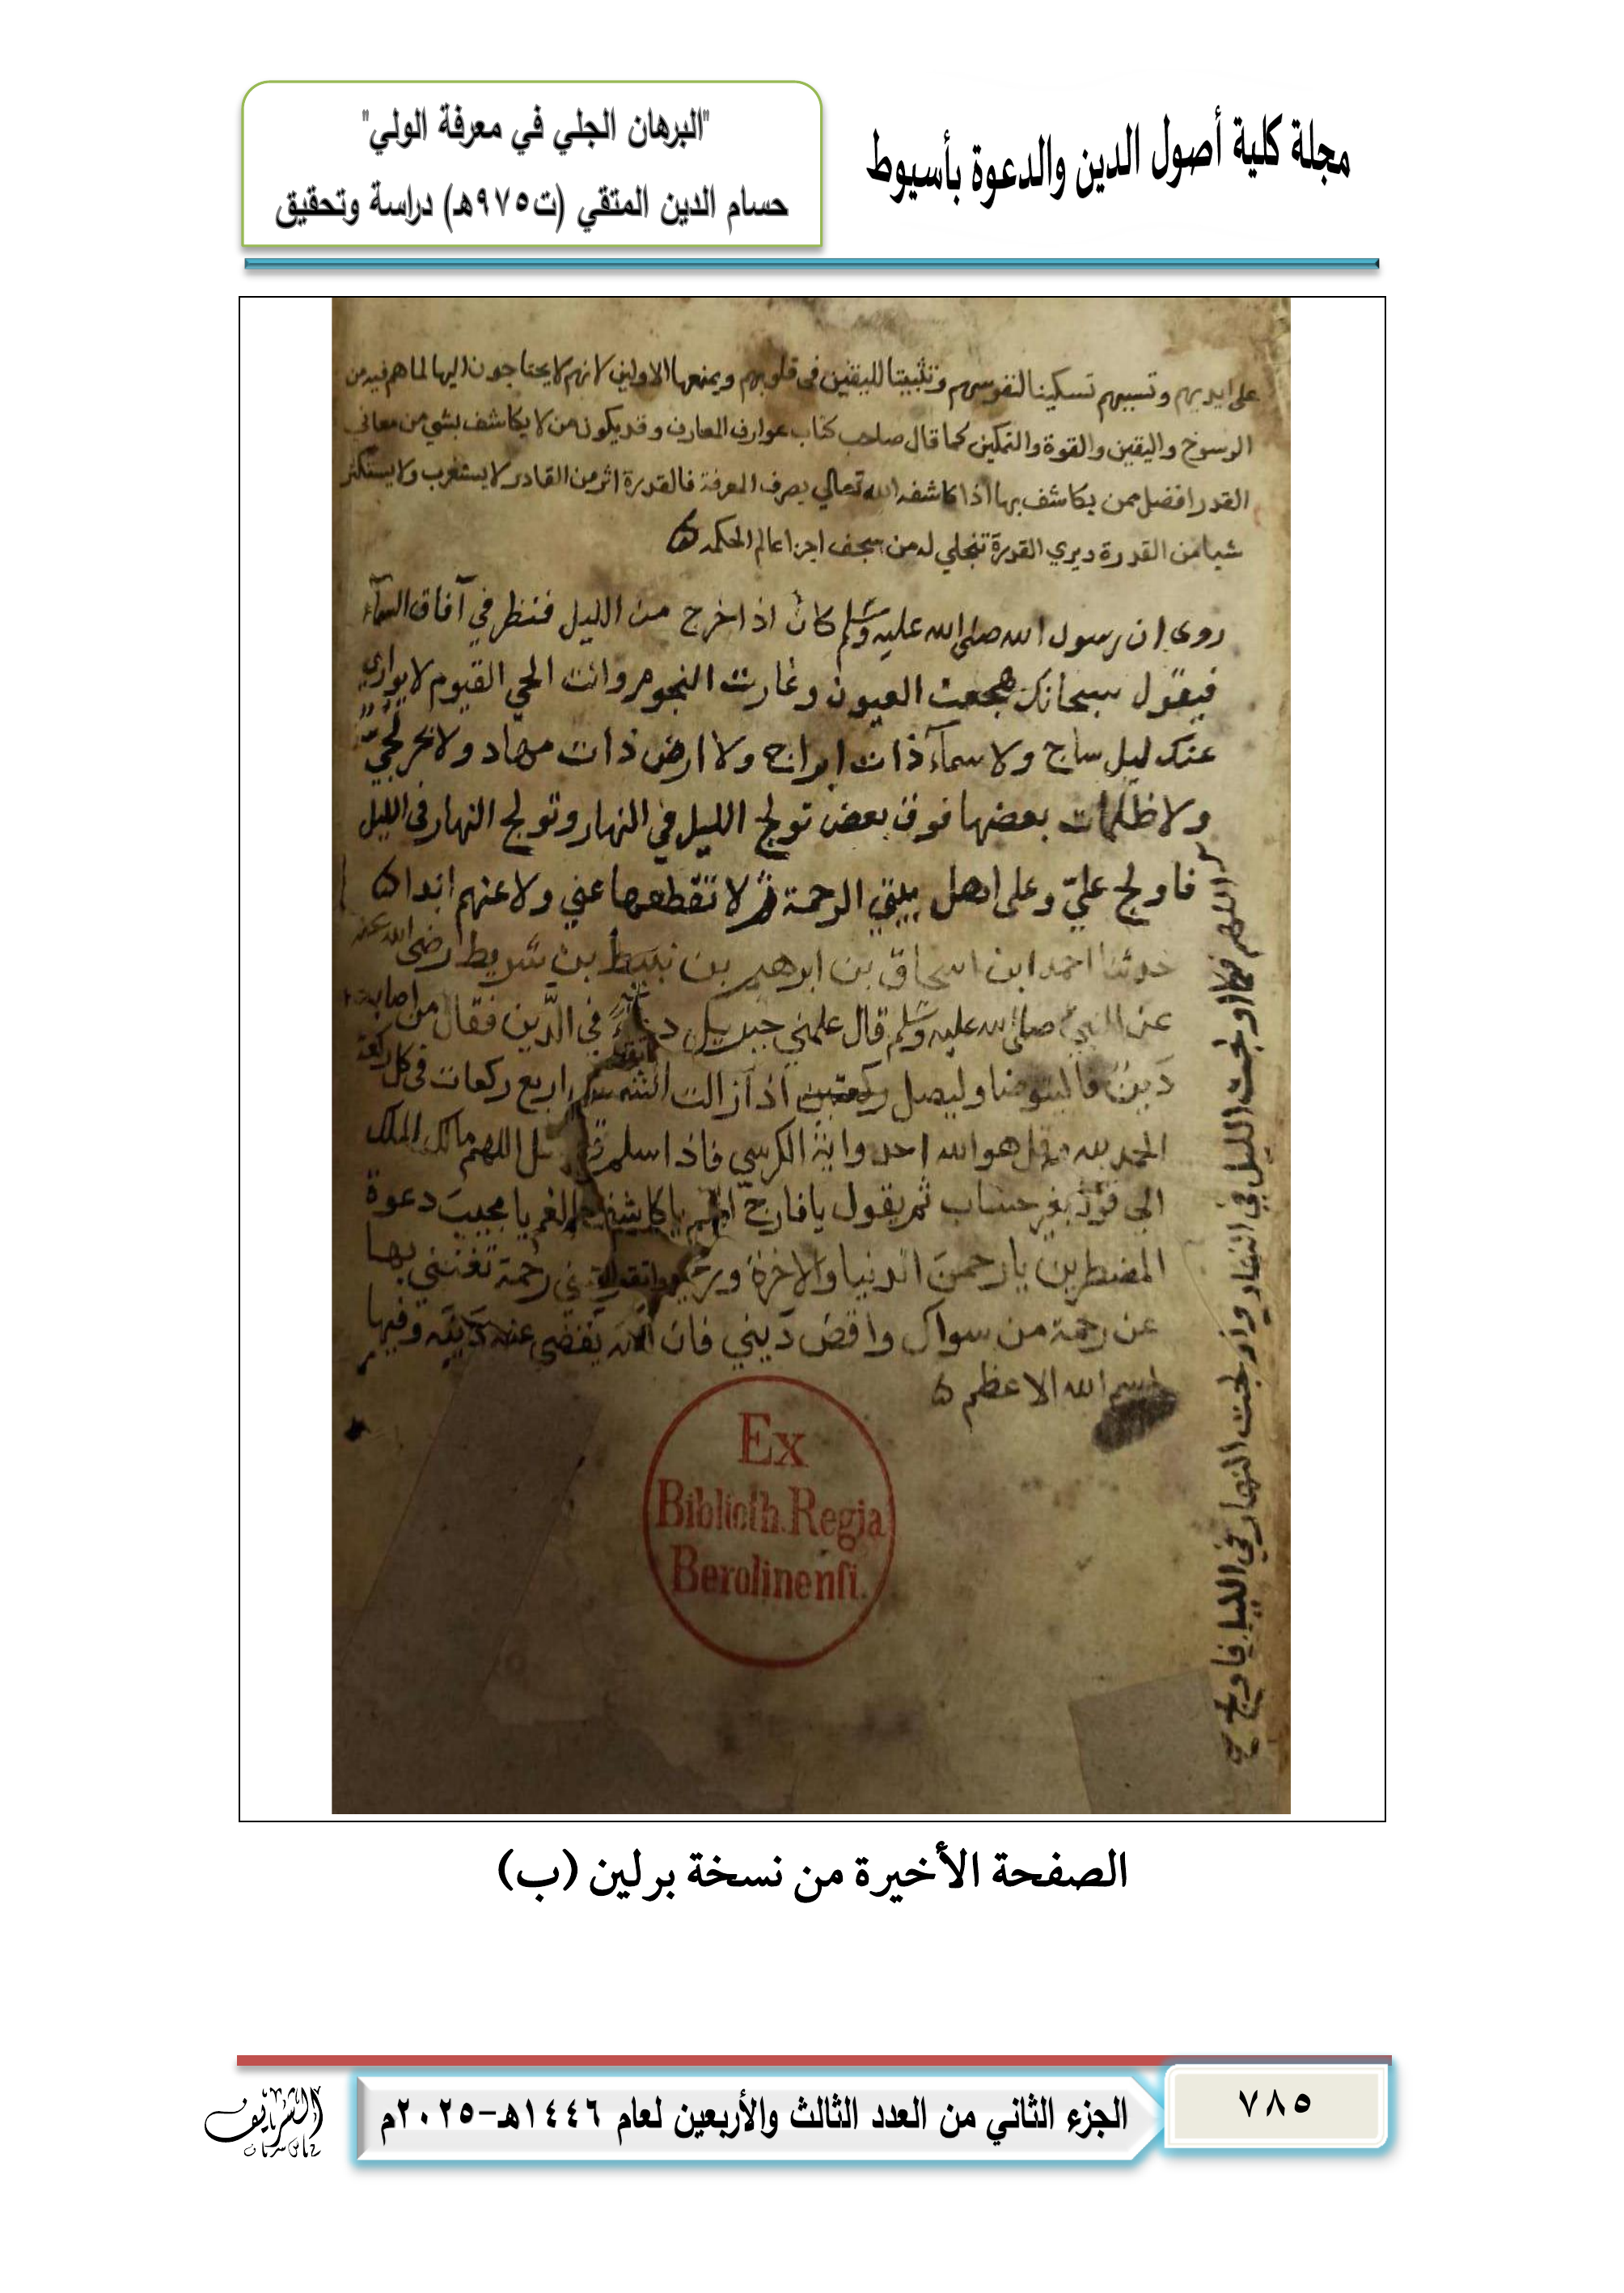 مجلة كلية أصول الدين والدعوة بأسيوط
"البرهان الجلي في معرفة الولي"
حسام الدين المتقي (ت٩٧٥هـ) دراسة وتحقيق
على ايديهم وتسببهم تسكينا لنفوسهم وتثبيتا لليقين في قلوبهم ويمنعها الاولين لانهم لا يحتاجون اليها لما هم فيه من
الرسوخ واليقين والقوة والتمكين كما قال صاحب كتاب عوارف المعارف وقد يكون من لا يكاشف بشي من معاني
القدر افضل ممن يكاشف بها اذا كاشفه الله تعالي بصرف المعرفة فالقدرة اثر من القادر لا يستغرب ولا يستكثر
شيا من القدرة ويري القدرة تتجلي له من سجف اجزا عالم الحكمه ه
روى ان رسول الله صلى الله عليه وسلم كان اذا خرج من الليل فنظر في آفاق السمآء
فيقول سبحانك هجعت العيون وغارت النجوم وانت الحي القيوم لا يواري
عنك ليل ساج ولا سمآء ذات ابراج ولا ارض ذات مهاد ولا بحر لجيّ
ولا ظلمات بعضها فوق بعض تولج الليل في النهار وتولج النهار في الليل
فاولج عليّ وعلى اهل بيتي الرحمة لا تقطعها عني ولا عنهم ابدا ه
حدثنا احمد ابن اسحاق بن ابرهيم بن نبيط بن شريط رضي الله عنه
عن النبي صلى الله عليه وسلم قال علمني جبرييل دعاء في الدّين فقال من اصابه
دَين فاليتوضا وليصل اذا زالت الشمس اربع ركعات في كل ركعة
الحمد لله وقل هو الله احد واية الكرسي فاذا سلم اللهم مالك الملك
الى قوله بغير حساب ثم يقول يا فارج الهم يا كاشف الغم يا مجيب دعوة
المضطرين يا رحمن الدنيا والاخرة رحمة تغنني بها
عن رحمة من سواك واقض دَيني فان الله يقضي عنه دَينه وفيها
اسم الله الاعظم ه
اللهم فكما اولجت الليل في النهار واولجت النهار في الليل فاولج
Ex
Biblioth. Regia
Berolinensi.
الصفحة الأخيرة من نسخة برلين (ب)
٧٨٥
الجزء الثاني من العدد الثالث والأربعين لعام ١٤٤٦هـ-٢٠٢٥م